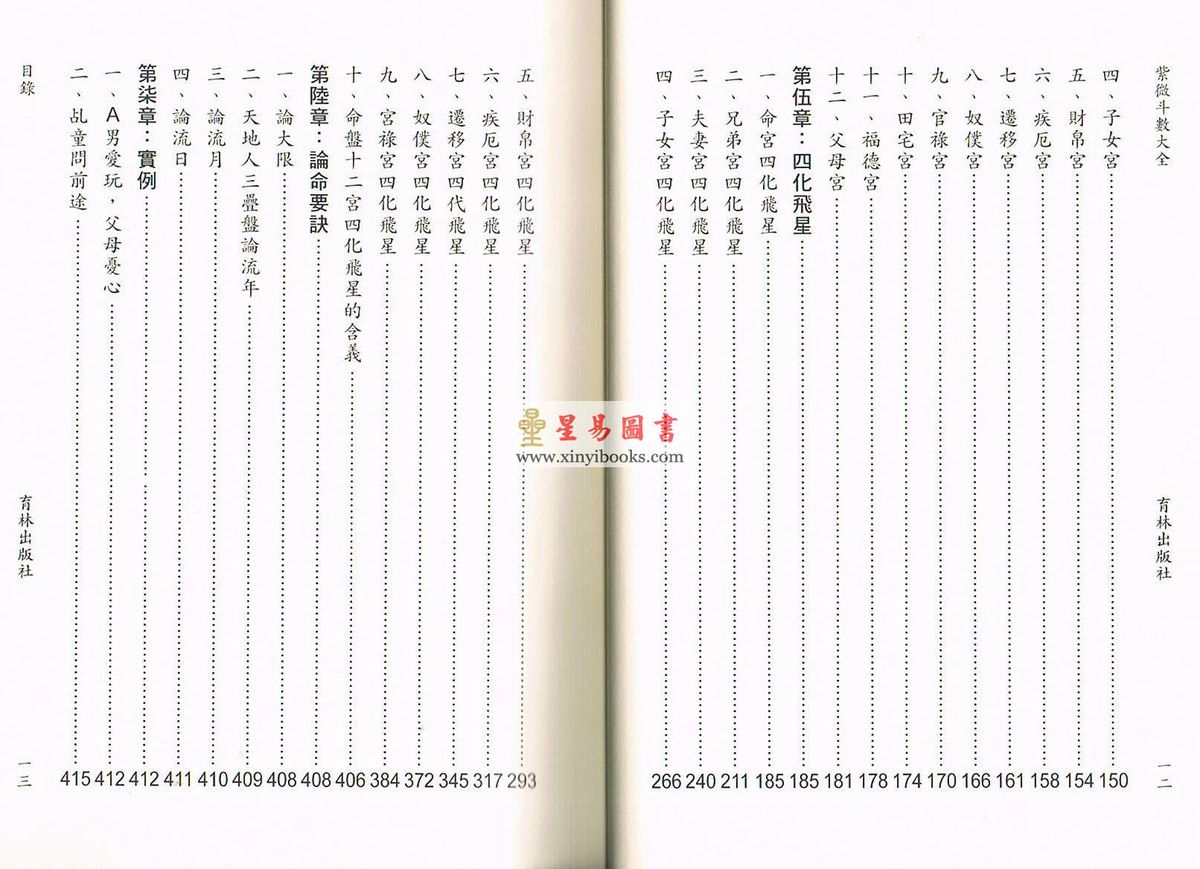 紫微斗數大全
四、子女宮 150
五、財帛宮 154
六、疾厄宮 158
七、遷移宮 161
八、奴僕宮 166
九、官祿宮 170
十、田宅宮 174
十一、福德宮 178
十二、父母宮 181
第伍章：四化飛星 185
一、命宮四化飛星 185
二、兄弟宮四化飛星 211
三、夫妻宮四化飛星 240
四、子女宮四化飛星 266
育林出版社
一二
星易圖書
www.xinyibooks.com
五、財帛宮四化飛星 293
六、疾厄宮四化飛星 317
七、遷移宮四代飛星 345
八、奴僕宮四化飛星 372
九、宮祿宮四化飛星 384
十、命盤十二宮四化飛星的含義 406
第陸章：論命要訣 408
一、論大限 408
二、天地人三疊盤論流年 409
三、論流月 410
四、論流日 411
第柒章：實例 412
一、A男愛玩，父母憂心 412
二、乩童問前途 415
目錄
育林出版社
一三